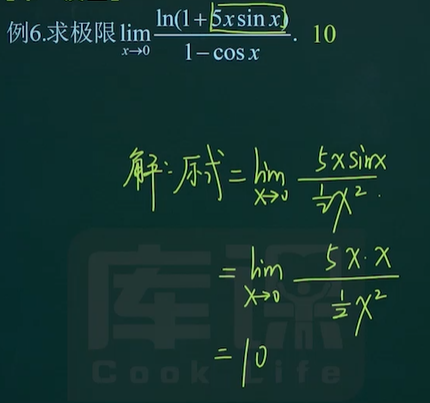 例6.求极限 lim x→0 ln(1+5x sin x) / 1−cos x . 10
解:原式 = lim x→0 5x sinx / ½x²
= lim x→0 5x·x / ½x²
= 10
库课
Cook Life